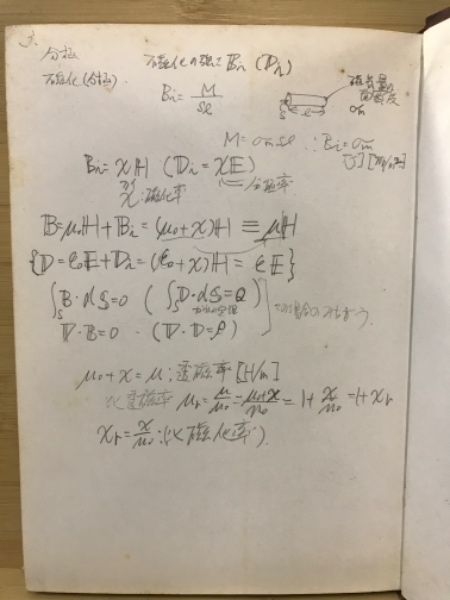 分極
磁化の強さ Bi (Di)
磁化(分極).
Bi = M/Sl
磁荷量の
面密度
σm
S l
M = σm Sl ∴ Bi = σm
Bi = χH (Di = χE)
χ:磁化率 分極率
B = μ0H + Bi = (μ0+χ)H ≡ μH
{D = ε0E + Di = (ε0+χ)E = εE}
∫S B・dS = 0 (∫S D・dS = Q)
∇・B = 0 . (∇・D = ρ)
μ0 + χ = μ ; 透磁率 [H/m]
比透磁率 μr = μ/μ0 = μ0+χ/μ0 = 1 + χ/μ0 = 1 + χr
χr = χ/μ0 : (比磁化率).